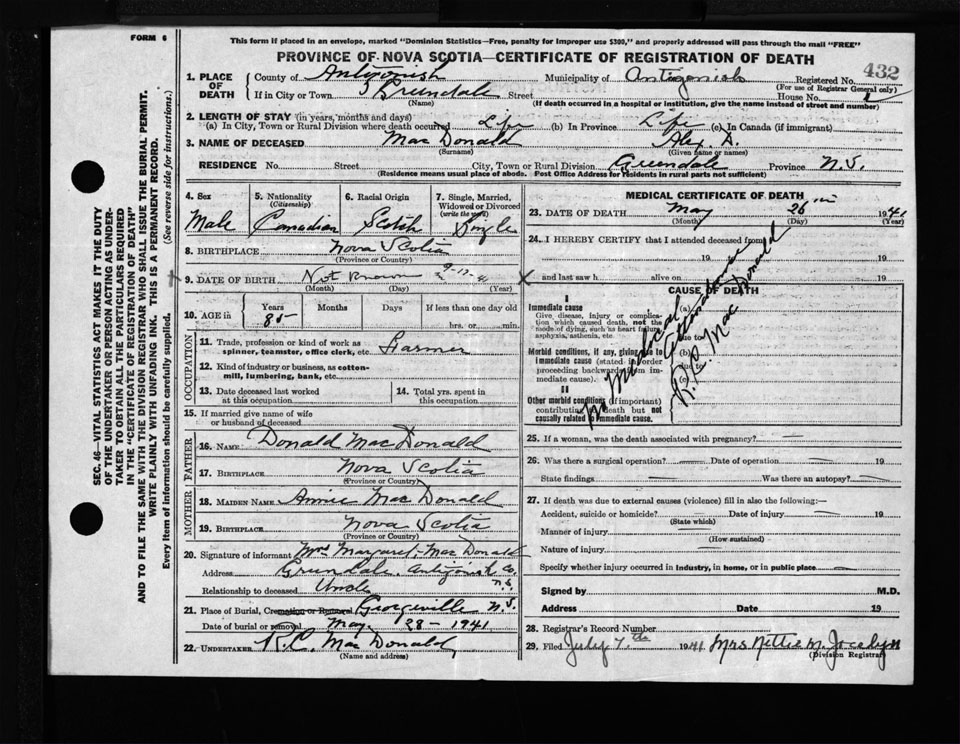 FORM 6
This form if placed in an envelope, marked "Dominion Statistics—Free, penalty for improper use $300," and properly addressed will pass through the mail "FREE"
PROVINCE OF NOVA SCOTIA—CERTIFICATE OF REGISTRATION OF DEATH
SEC. 46—VITAL STATISTICS ACT MAKES IT THE DUTY
OF THE UNDERTAKER OR PERSON ACTING AS UNDER-
TAKER TO OBTAIN ALL THE PARTICULARS REQUIRED
IN THE "CERTIFICATE OF REGISTRATION OF DEATH"
AND TO FILE THE SAME WITH THE DIVISION REGISTRAR WHO SHALL ISSUE THE BURIAL PERMIT.
WRITE PLAINLY WITH UNFADING INK. THIS IS A PERMANENT RECORD.
Every item of information should be carefully supplied. (See reverse side for instructions.)
1. PLACE OF DEATH
County of Antigonish Municipality of Antigonish Registered No. 432
(For use of Registrar General only)
If in City or Town Greendale Street House No.
(Name) (If death occurred in a hospital or institution, give the name instead of street and number)
2. LENGTH OF STAY (in years, months and days)
(a) In City, Town or Rural Division where death occurred Life (b) In Province Life (c) In Canada (if immigrant)
3. NAME OF DECEASED Mac Donald Alex. D.
(Surname) (Given name or names)
RESIDENCE No. Street City, Town or Rural Division Greendale Province N.S.
(Residence means usual place of abode. Post Office Address for residents in rural parts not sufficient)
4. Sex
Male
5. Nationality
(Citizenship)
Canadian
6. Racial Origin
Scotch
7. Single, Married,
Widowed or Divorced
(write the word)
Single
8. BIRTHPLACE Nova Scotia
(Province or Country)
9. DATE OF BIRTH Not Known 9-12-41
(Month) (Day) (Year)
10. AGE in
Years Months Days If less than one day old
85 hrs. or min.
OCCUPATION
11. Trade, profession or kind of work as
spinner, teamster, office clerk, etc. Farmer
12. Kind of industry or business, as cotton-
mill, lumbering, bank, etc.
13. Date deceased last worked
at this occupation
14. Total yrs. spent in
this occupation
15. If married give name of wife
or husband of deceased
FATHER
16. NAME Donald Mac Donald
17. BIRTHPLACE Nova Scotia
(Province or Country)
MOTHER
18. MAIDEN NAME Annie Mac Donald
19. BIRTHPLACE Nova Scotia
(Province or Country)
20. Signature of informant Mrs Margaret Mac Donald
Address Greendale, Antigonish Co.
N.S.
Relationship to deceased Uncle
21. Place of Burial, Cremation or Removal Georgeville N.S.
Date of burial or removal May 28 - 1941
22. UNDERTAKER R.C. Mac Donald
(Name and address)
MEDICAL CERTIFICATE OF DEATH
23. DATE OF DEATH May 26th 1941
(Month) (Day) (Year)
24. I HEREBY CERTIFY that I attended deceased from
19 to 19
and last saw h alive on 19
CAUSE OF DEATH
I
Immediate cause (a)
Give disease, injury or complica-
tion which caused death, not the
mode of dying, such as heart failure,
asphyxia, asthenia, etc.
due to
Morbid conditions, if any, giving rise to (b)
immediate cause (stated in order
proceeding backwards from im-
mediate cause).
due to
(c)
II
Other morbid conditions (if important)
contributing to death but not
causally related to immediate cause.
No Medical
Attendance
R.C. Mac Donald
25. If a woman, was the death associated with pregnancy?
26. Was there a surgical operation? Date of operation 19
State findings Was there an autopsy?
27. If death was due to external causes (violence) fill in also the following:—
Accident, suicide or homicide? Date of injury 19
(State which)
Manner of injury
(How sustained)
Nature of injury
Specify whether injury occurred in industry, in home, or in public place
Signed by M.D.
Address Date 19
28. Registrar's Record Number
29. Filed July 7th 1941 Mrs Nettie M. Jocelyn
(Division Registrar)